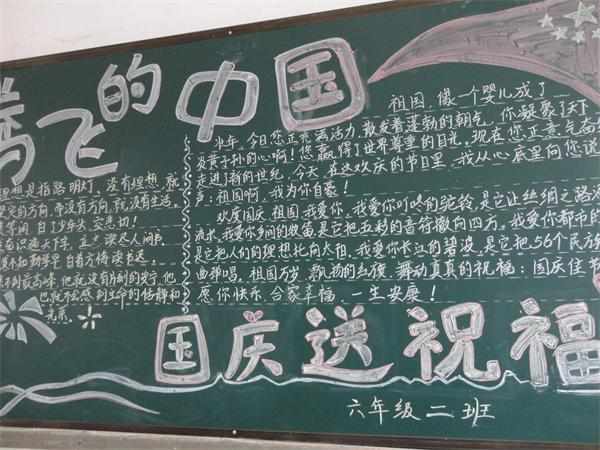 腾飞的中国
祖国,像一个婴儿成了
半年,今日您正充满活力,散发着蓬勃的朝气,你凝聚了天下
炎黄子孙的心啊!您赢得了世界尊重的目光,现在您正意气高
走进了新的世纪,今天,在这欢庆的节日里,我从心底里向您说
声:祖国啊,我为你自豪!
欢度国庆,祖国我爱你,我爱你叮咚的驼铃,是它让丝绸之路
流长,我爱你乡间的牧笛是它把五彩的音符撒向四方,我爱你都市的
是它把人们的理想托向太阳,我爱你长江的碧波,是它把56个民族
曲弹唱。祖国万岁,飘扬的红旗,舞动真真的祝福:国庆佳节
愿你快乐,合家幸福,一生安康!
理想是指路明灯,没有理想,就
坚定的方向,而没有方向,就没有生活。
莫等闲,白了少年头,空悲切!
有知识遍天下
莫不知勤学早,白首方悔读书迟。
国庆送祝福
六年级二班